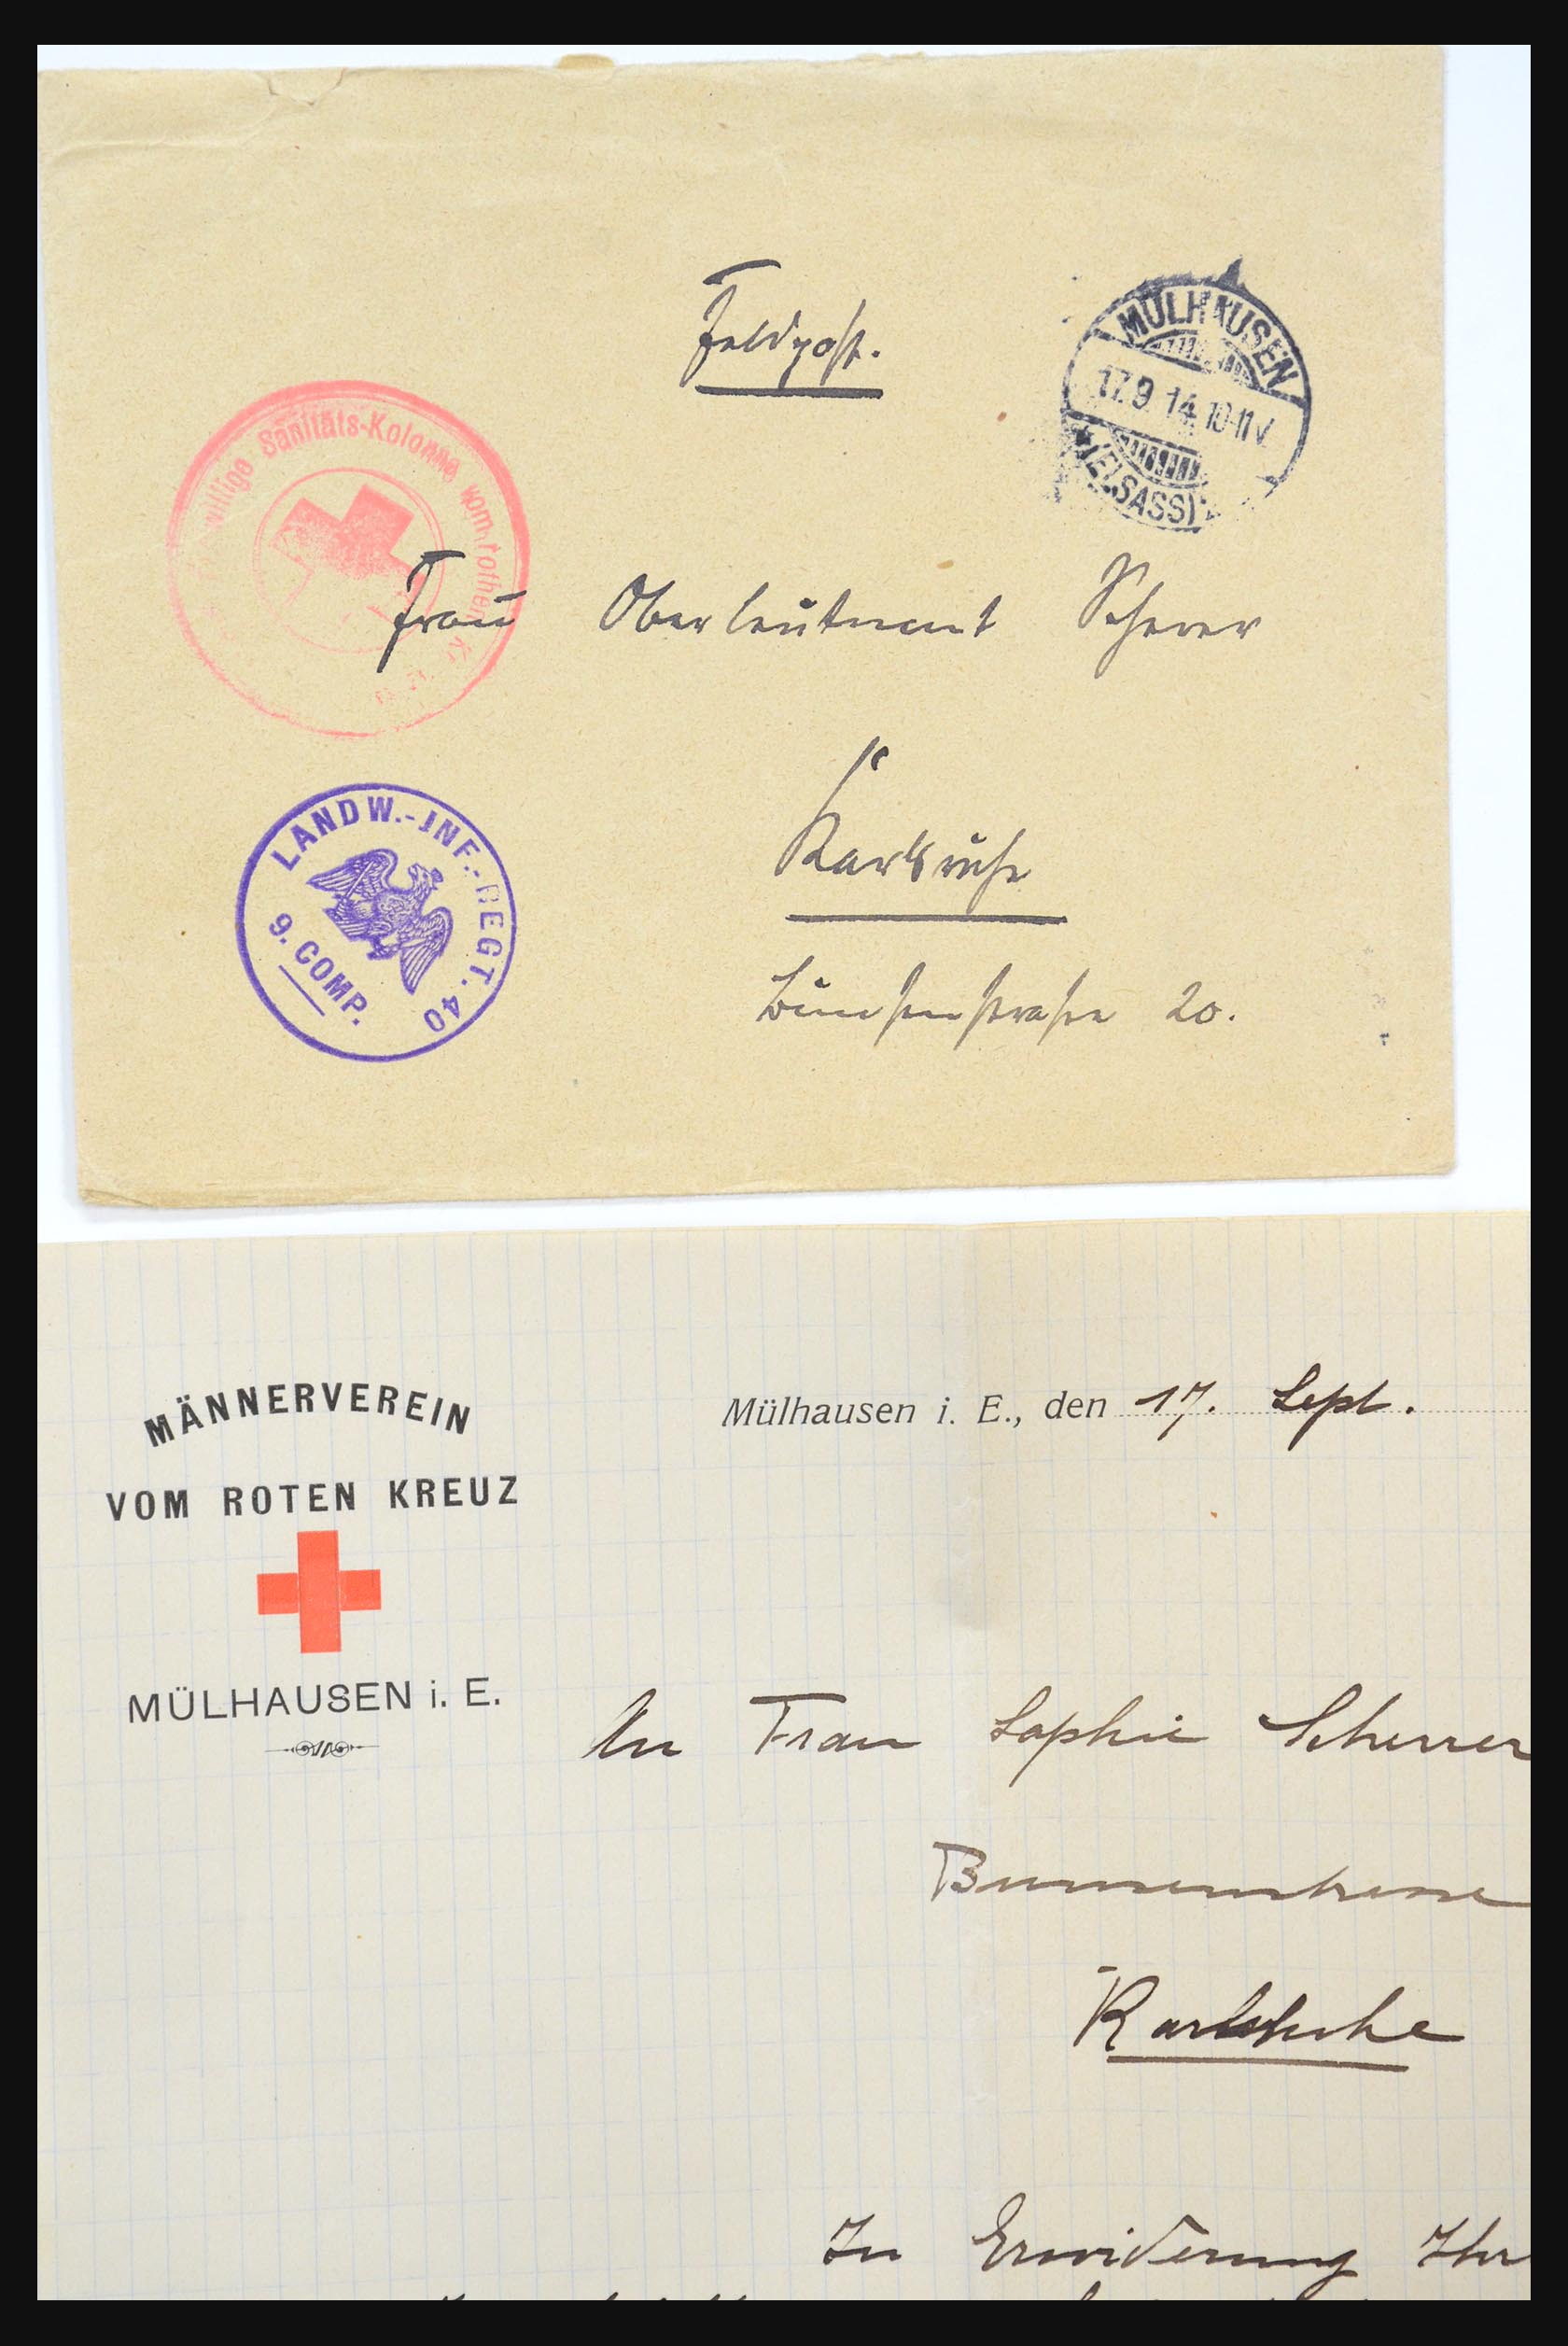 Feldpost.
MÜLHAUSEN
17.9.14.10-11V
(ELSASS)
willige Sanitäts-Kolonne vom rothen Kr
Frau Oberleutnant Scherer
Karlsruhe
Bunsenstrasse 20.
LANDW.-INF.-REGT. 40
9. COMP.
MÄNNERVEREIN
VOM ROTEN KREUZ
MÜLHAUSEN i. E.
Mülhausen i. E., den 17. Sept.
An Frau Sophie Scherrer
Bunsenstrasse
Karlsruhe
In Erwiderung Ihr